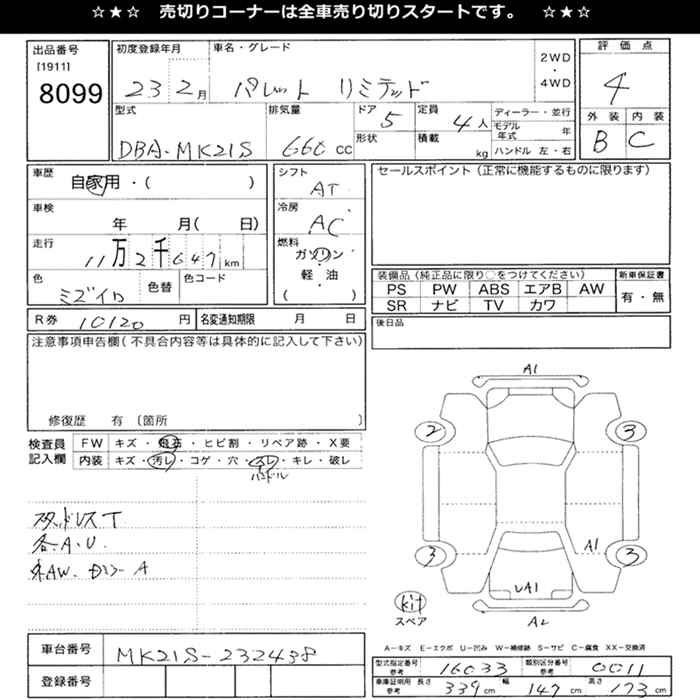 ☆★☆ 売切りコーナーは全車売り切りスタートです。 ☆★☆
出品番号
[1911]
8099
初度登録年月
23 2月
車名・グレード
パレット リミテッド
2WD
・
4WD
評価点
4
外装 内装
B C
型式
DBA-MK21S
排気量
660 cc
ドア 5
形状
定員 4人
積載 kg
ディーラー・並行
モデル年式 年
ハンドル 左・右
車歴
自家用・( )
車検
年 月( 日)
走行
11万2千647km
色
ミズイロ
色替
色コード
シフト
AT
冷房
AC
燃料
ガソリン
・
軽油
( )
セールスポイント(正常に機能するものに限ります)
装備品(純正品に限り○をつけてください)
PS PW ABS エアB AW
SR ナビ TV カワ
新車保証書
有・無
R券 10120 円
名変通知期限 月 日
後日品
注意事項申告欄(不具合内容等は具体的に記入して下さい)
修復歴 有〔箇所 〕
検査員
記入欄
FW キズ・飛石・ヒビ割・リペア跡・X要
内装 キズ・汚レ・コゲ・穴・スレ・キレ・破レ
ハンドル
スタッドレスT
各A.U.
A1
2 3
3 3
A1
UA1
A2
kit
スペア
A-キズ E-エクボ U-凹み W-補修跡 S-サビ C-腐食 XX-交換済
車台番号 MK21S-232438
登録番号
型式指定番号 参考 16033
類別区分番号 参考 0011
車庫証明用 参考 長さ 339cm 幅 147cm 高さ 173cm